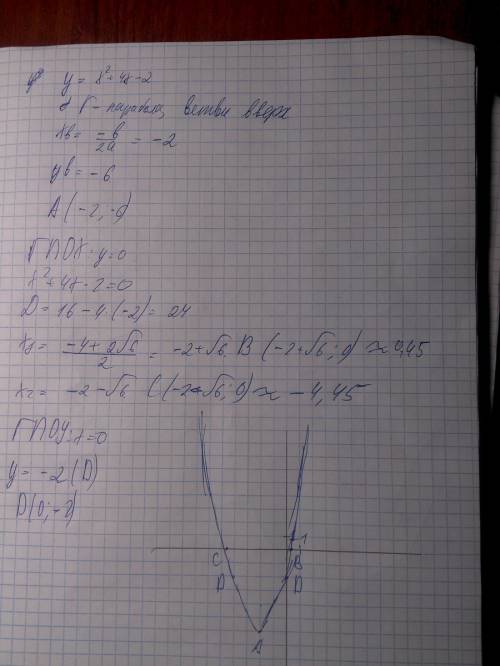 y = x²+4x-2
Г - парабола, ветви вверх
xв = -b/2a = -2
yв = -6
A (-2; -6)
Г ∩ OX: y=0
x²+4x-2=0
D = 16-4·(-2) = 24
x₁ = (-4+2√6)/2 = -2+√6. B (-2+√6; 0) ≈ 0,45
x₂ = -2-√6. C (-2-√6; 0) ≈ -4,45
Г ∩ OY: x=0
y = -2 (D)
D(0; -2)
1
C B
D D
A